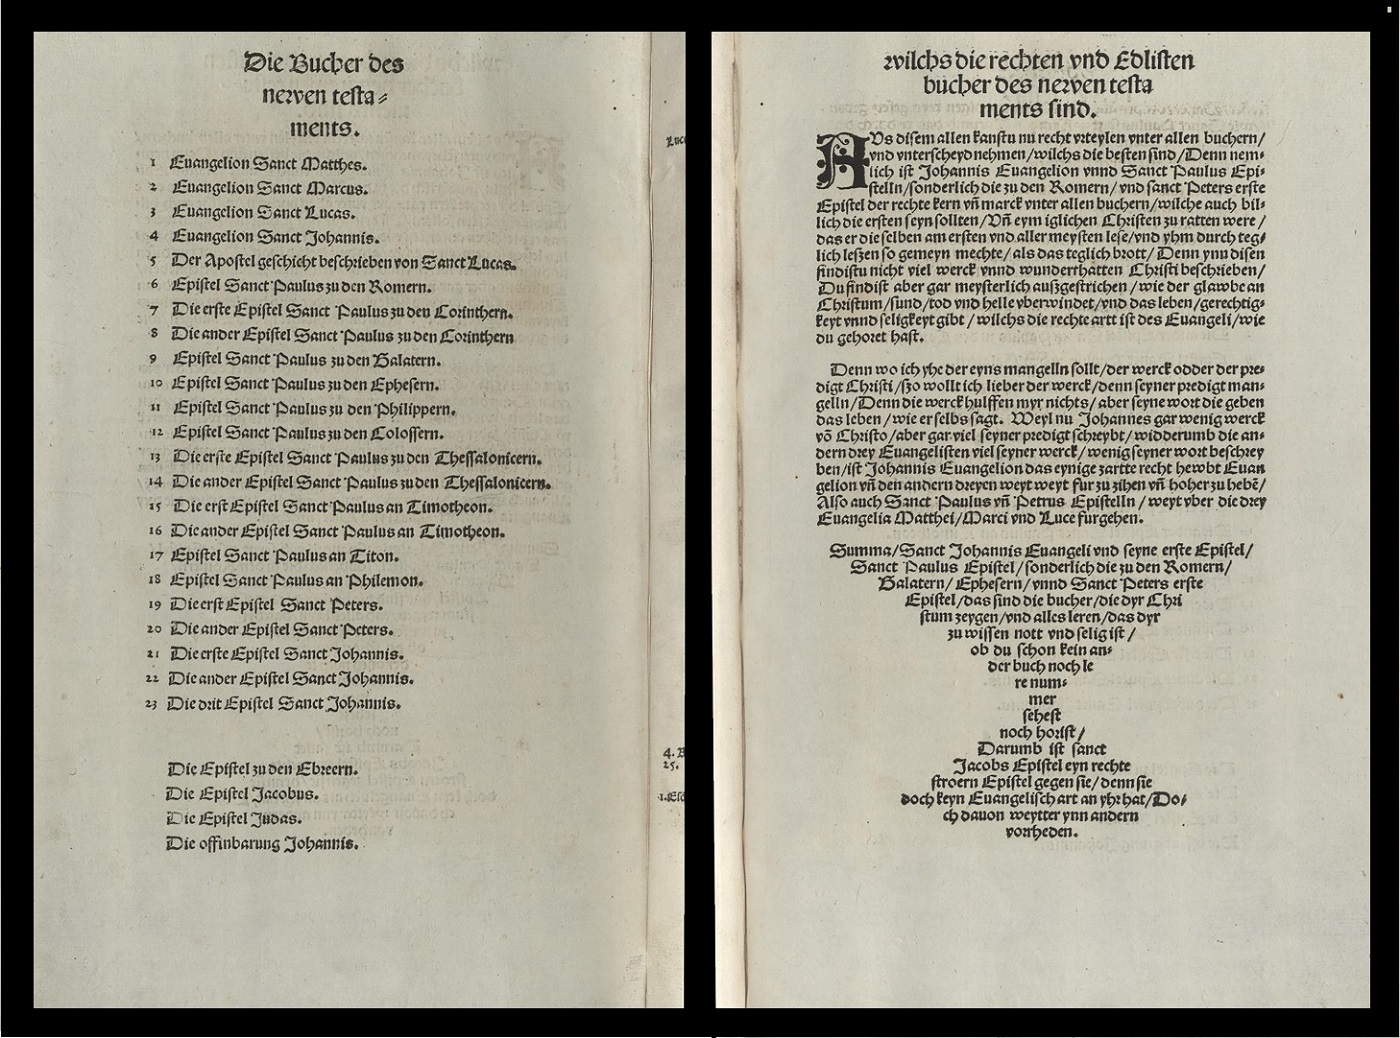 Die Bucher des
newen testa⸗
ments.
1 Euangelion Sanct Matthes.
2 Euangelion Sanct Marcus.
3 Euangelion Sanct Lucas.
4 Euangelion Sanct Johannis.
5 Der Apostel geschicht beschrieben von Sanct Lucas.
6 Epistel Sanct Paulus zu den Romern.
7 Die erste Epistel Sanct Paulus zu den Corinthern.
8 Die ander Epistel Sanct Paulus zu den Corinthern
9 Epistel Sanct Paulus zu den Galatern.
10 Epistel Sanct Paulus zu den Ephesern.
11 Epistel Sanct Paulus zu den Philippern.
12 Epistel Sanct Paulus zu den Colossern.
13 Die erste Epistel Sanct Paulus zu den Thessalonicern.
14 Die ander Epistel Sanct Paulus zu den Thessalonicern.
15 Die erst Epistel Sanct Paulus an Timotheon.
16 Die ander Epistel Sanct Paulus an Timotheon.
17 Epistel Sanct Paulus an Titon.
18 Epistel Sanct Paulus an Philemon.
19 Die erst Epistel Sanct Peters.
20 Die ander Epistel Sanct Peters.
21 Die erste Epistel Sanct Johannis.
22 Die ander Epistel Sanct Johannis.
23 Die drit Epistel Sanct Johannis.
Die Epistel zu den Ebreern.
Die Epistel Jacobus.
Die Epistel Judas.
Die offinbarung Johannis.
Luc
4. B
25.
wilchs die rechten vnd Edlisten
bucher des newen testa
ments sind.
AUs disem allen kanstu nu recht vrteylen vnter allen buchern/
vnd vnterscheyd nehmen/wilchs die besten sind/Denn nem⸗
lich ist Johannis Euangelion vnnd Sanct Paulus Epi⸗
stelln/sonderlich die zu den Romern/vnd sanct Peters erste
Epistel der rechte kern vñ marck vnter allen buchern/wilche auch bil⸗
lich die ersten seyn sollten/Vñ eym iglichen Christen zu ratten were/
das er die selben am ersten vnd aller meysten lese/vnd yhm durch teg⸗
lich leßzen so gemeyn mechte/als das teglich brott/Denn ynn disen
findistu nicht viel werck vnnd wunderthatten Christi beschrieben/
Du findist aber gar meysterlich außgestrichen/wie der glawbe an
Christum/sund/tod vnd helle vberwindet/vnd das leben/gerechtig⸗
keyt vnnd seligkeyt gibt/wilchs die rechte artt ist des Euangeli/wie
du gehoret hast.
Denn wo ich yhe der eyns mangelln sollt/der werck odder der pre⸗
digt Christi/ßo wollt ich lieber der werck/denn seyner predigt man⸗
gelln/Denn die werck hulffen myr nichts/aber seyne wort die geben
das leben/wie er selbs sagt. Weyl nu Johannes gar wenig werck
võ Christo/aber gar viel seyner predigt schreybt/widderumb die an⸗
dern drey Euangelisten viel seyner werck/wenig seyner wort beschrey
ben/ist Johannis Euangelion das eynige zartte recht hewbt Euan
gelion vñ den andern dreyen weyt weyt fur zu zihen vñ hoher zu hebẽ/
Also auch Sanct Paulus vñ Petrus Epistelln/weyt vber die drey
Euangelia Matthei/Marci vnd Luce furgehen.
Summa/Sanct Johannis Euangeli vnd seyne erste Epistel/
Sanct Paulus Epistel/sonderlich die zu den Romern/
Galatern/Ephesern/vnnd Sanct Peters erste
Epistel/das sind die bucher/die dyr Chri
stum zeygen/vnd alles leren/das dyr
zu wissen nott vnd selig ist/
ob du schon kein an⸗
der buch noch le
re num⸗
mer
sehest
noch horist/
Darumb ist sanct
Jacobs Epistel eyn rechte
stroern Epistel gegen sie/denn sie
doch keyn Euangelisch art an yhr hat/Do⸗
ch dauon weytter ynn andern
vorrheden.